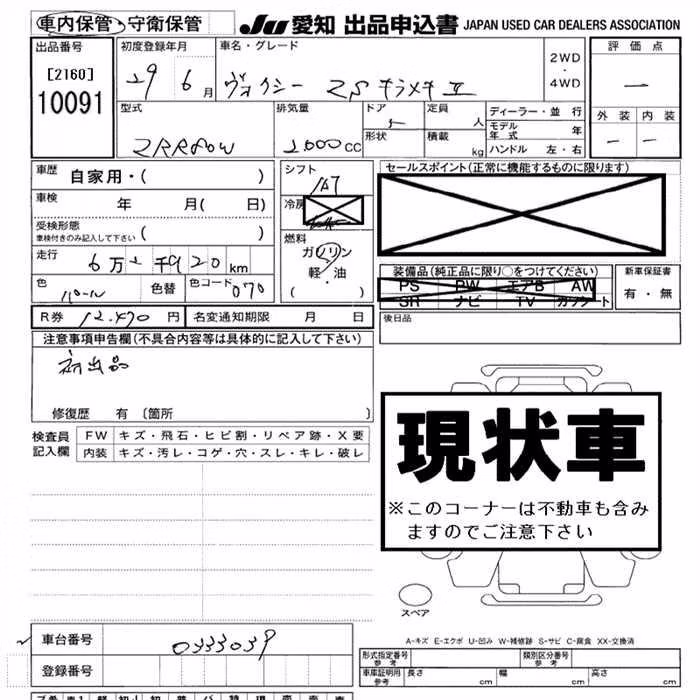 車内保管・守衛保管
JU 愛知 出品申込書 JAPAN USED CAR DEALERS ASSOCIATION
出品番号 初度登録年月 車名・グレード 2WD・4WD 評価点
[2160]
10091
29 6月 ヴォクシー ZS キラメキⅡ ー
型式 排気量 ドア 定員 人 ディーラー・並行 外装 内装
形状 積載 kg モデル年式 年
ZRR80W 2000cc 5 ハンドル 左・右 ー ー
車歴 自家用・( ) シフト セールスポイント(正常に機能するものに限ります)
車検 年 月( 日) IAT
冷房
受検形態
車検付きのみ記入して下さい ( )
燃料
走行 6万2千920km ガソリン
軽・油
( )
装備品(純正品に限り○をつけてください) 新車保証書
色 パール 色替 色コード 070 PS PW エアB AW 有・無
SR ナビ TV カワシート
R券 12,470円 名変通知期限 月 日 後日品
注意事項申告欄(不具合内容等は具体的に記入して下さい)
初出品
修復歴 有 [箇所 ]
検査員記入欄 FW キズ・飛石・ヒビ割・リペア跡・X要
内装 キズ・汚レ・コゲ・穴・スレ・キレ・破レ
現状車
※このコーナーは不動車も含み
ますのでご注意下さい
スペア
A-キズ E-エクボ U-凹み W-補修跡 S-サビ C-腐食 XX-交換済
車台番号 0333039
登録番号
形式指定番号 参考 類別区分番号 参考
車庫証明用 参考 長さ cm 幅 cm 高さ cm